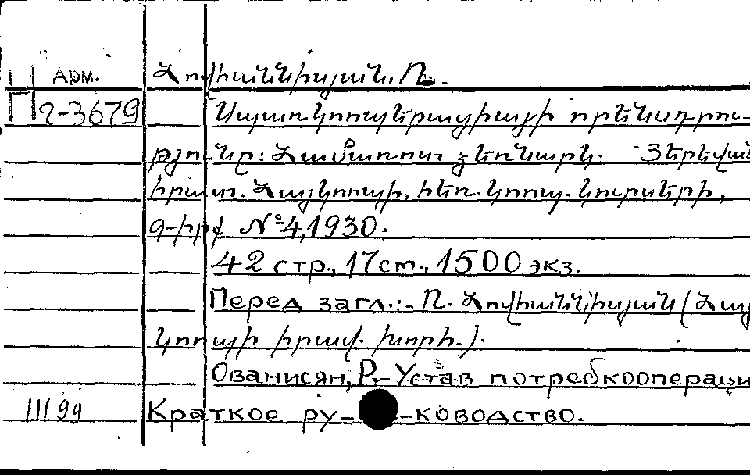 Арм. Հովհաննիսյան, Ռ.
П2-3679 Սպառկոոպերացիայի օրենսդրու-
թյունը: Համառոտ ձեռնարկ. Յերեվան
հրատ. Հայկոոպի, հեռ. կոոպ. կուրսերի,
№4, 1930.
42 стр., 17 см., 1500 экз.
Перед загл.: Ռ. Հովհաննիսյան (Հայ
կոոպի իրավ. խորհ.).
Ованисян, Р.- Устав потребкооперации
III 99 Краткое ру- -ководство.